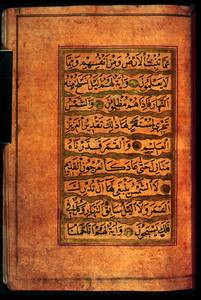 مما تنبت الارض ومن انفسهم ومما
لا يعلمون واية لهم الليل نسلخ منه
النهار فاذا هم مظلمون والشمس
تجري لمستقر لها ذلك تقدير العزيز
العليم والقمر قدرناه
منازل حتى عاد كالعرجون القديم
لا الشمس ينبغي لها ان تدرك
القمر ولا الليل سابق النهار وكل في
فلك يسبحون واية لهم انا حملنا